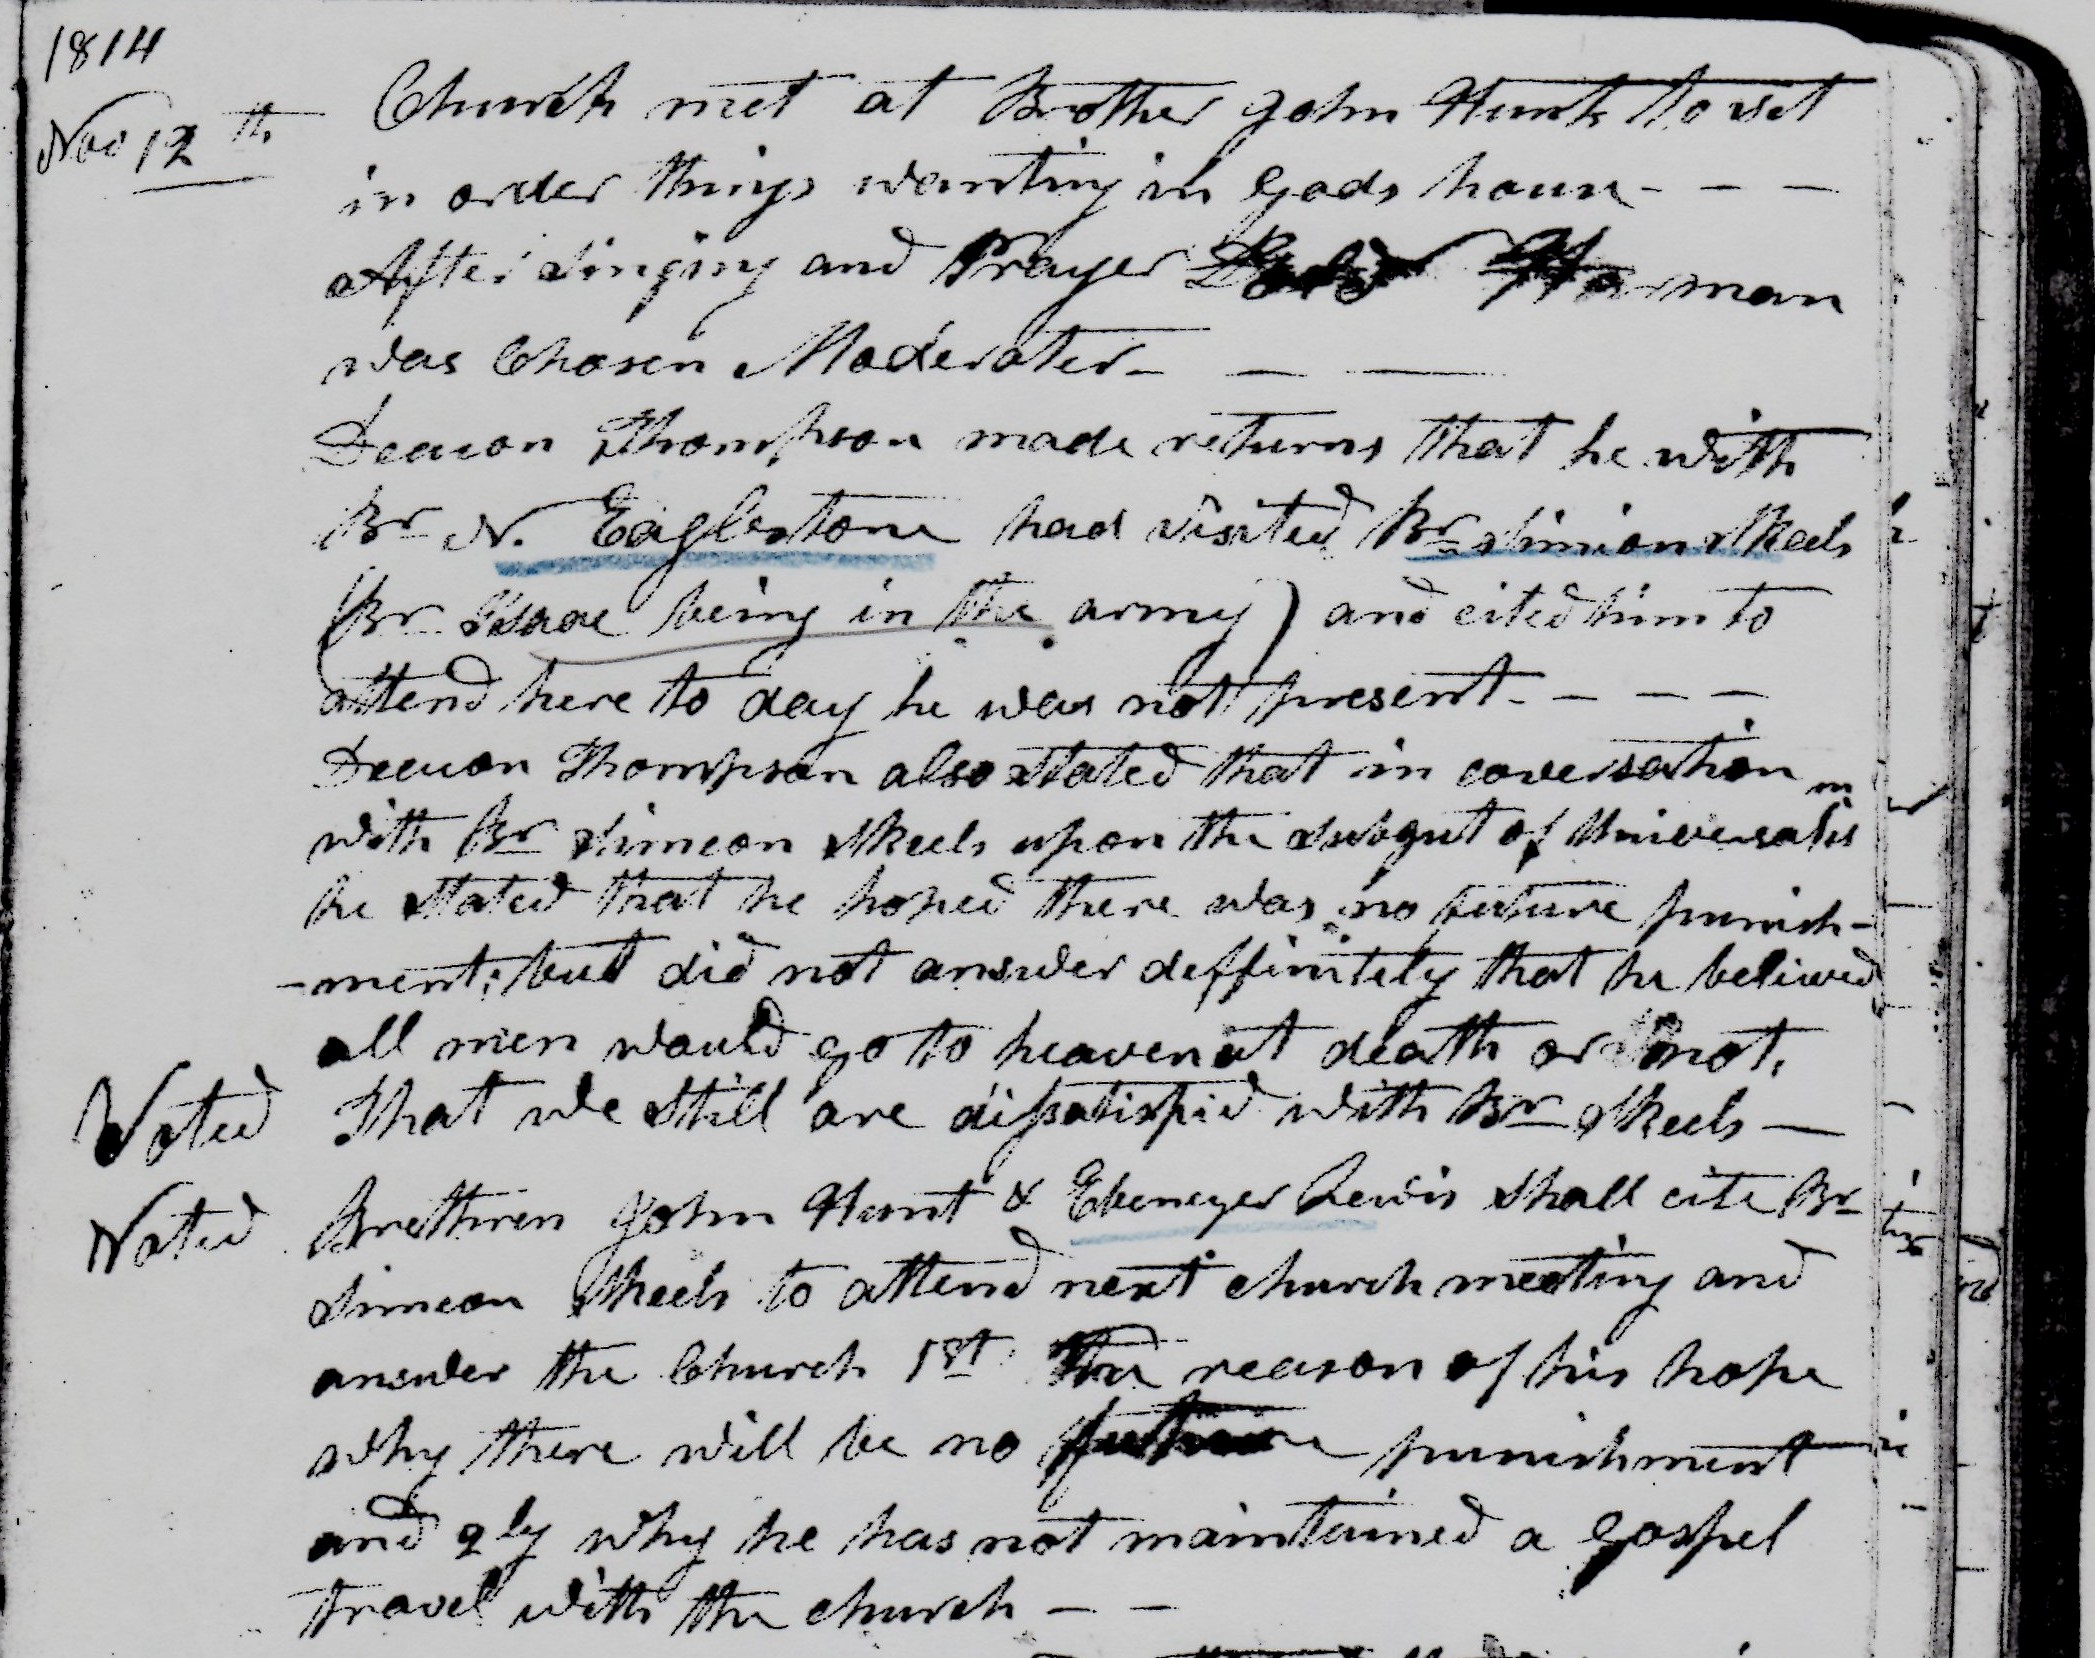 1814
Nov 12th Church met at Brother John Hunts to set
in order things wanting in Gods house - - -
After singing and Prayer Harman
was Chosen Moderater - - -
Deacon Thompson made returns that he with
Br N. Eaglestone had visited Br Simion Skeels
(Br Isaac being in the army) and cited him to
attend here to day he was not present - - - -
Deacon Thompson also stated that in coversation
with Br Simeon Skeels upon the subject of Universalism
he stated that he hoped there was no future punish-
-ment; but did not answer deffinitely that he believed
all men would go to heaven at death or not.
Voted That we still are dissatisfied with Br Skeels —
Voted Brethren John Hunt & Ebenezer Lewis shall cite Br
Simeon Skeels to attend next church meeting and
answer the Church 1st The reason of his hope
why there will be no future punishment
and 2ly why he has not maintained a gospel
travel with the church - -